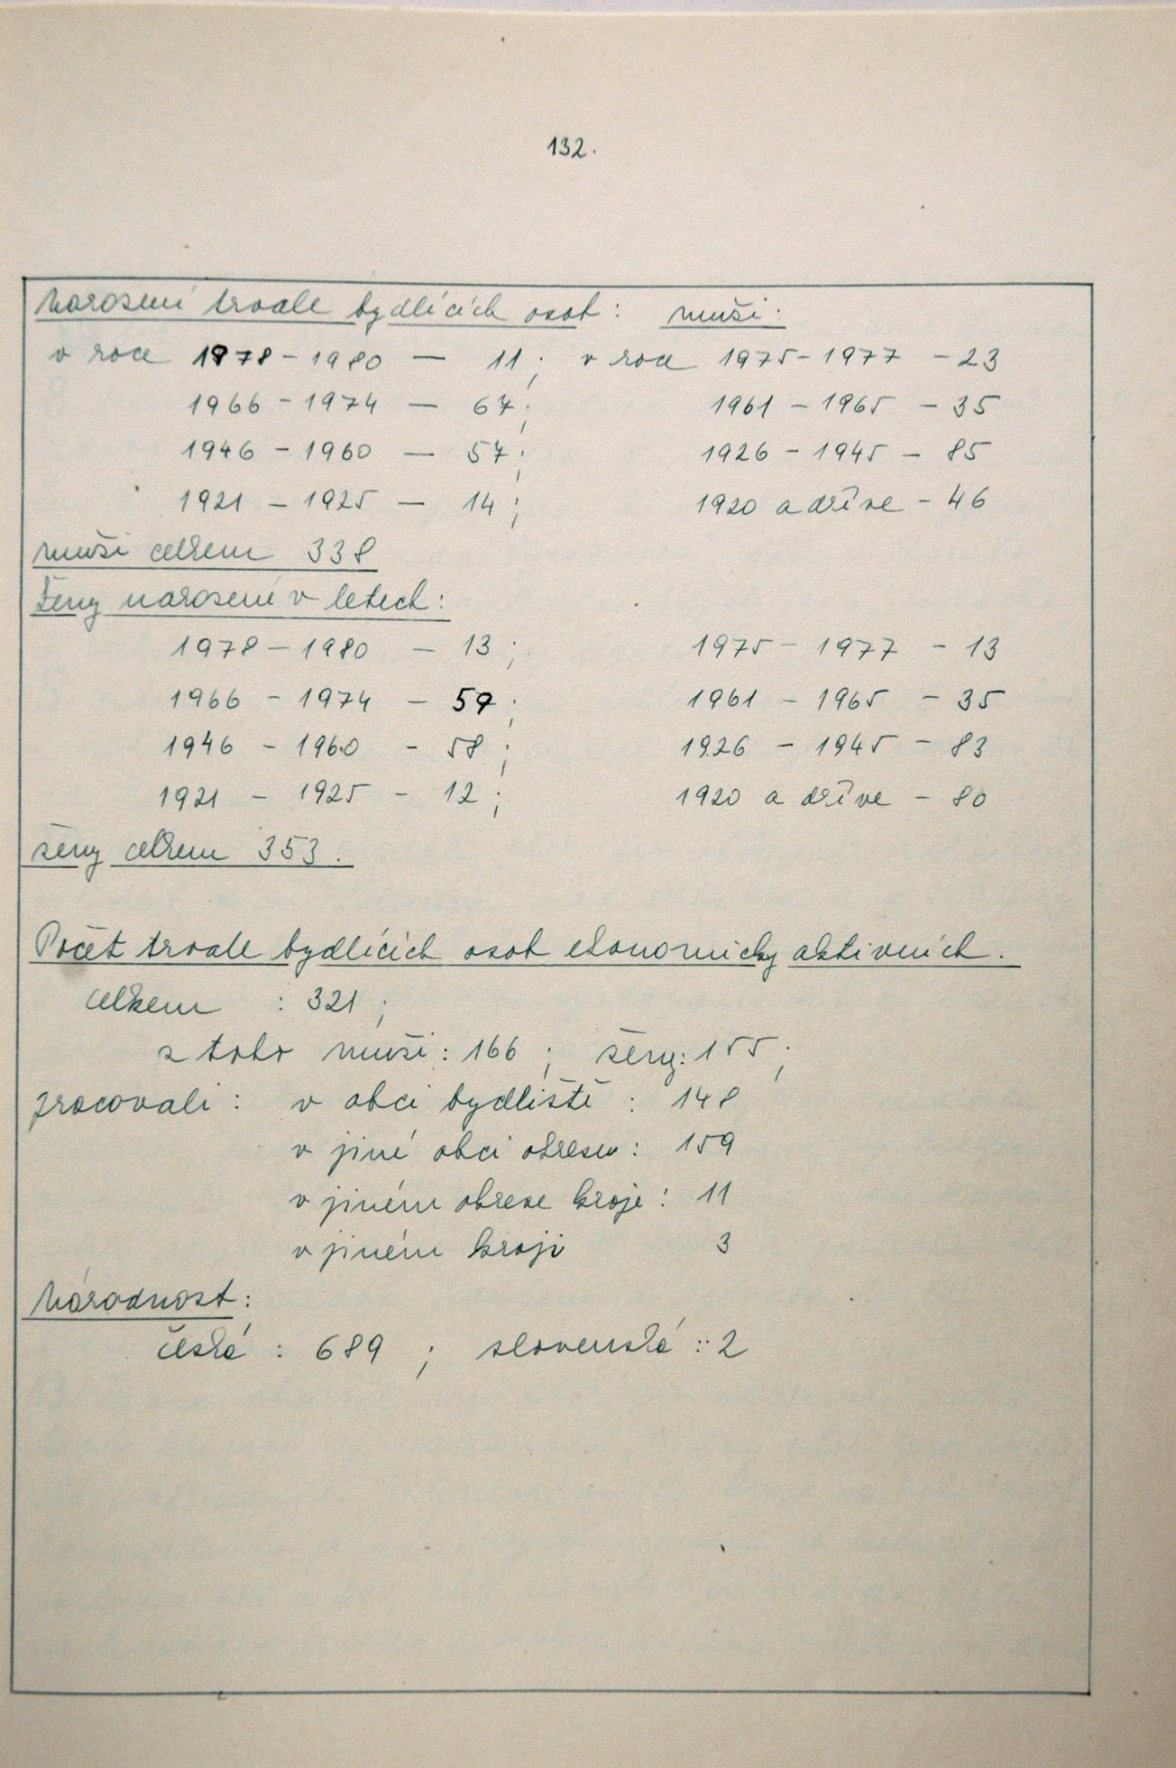 132.
Narození trvale bydlících osob: muži:
v roce 1978 - 1980 — 11; v roce 1975 - 1977 - 23
1966 - 1974 — 67; 1961 - 1965 - 35
1946 - 1960 — 57; 1926 - 1945 - 85
1921 - 1925 — 14; 1920 a dříve - 46
muži celkem 338
ženy narozené v letech:
1978 - 1980 - 13; 1975 - 1977 - 13
1966 - 1974 - 59; 1961 - 1965 - 35
1946 - 1960 - 58; 1926 - 1945 - 83
1921 - 1925 - 12; 1920 a dříve - 80
ženy celkem 353.
Počet trvale bydlících osob ekonomicky aktivních.
celkem : 321;
z toho muži: 166; ženy: 155;
pracovali: v obci bydliště: 148
v jiné obci okresu: 159
v jiném okrese kraje: 11
v jiném kraji 3
Národnost:
česká: 689; slovenská: 2